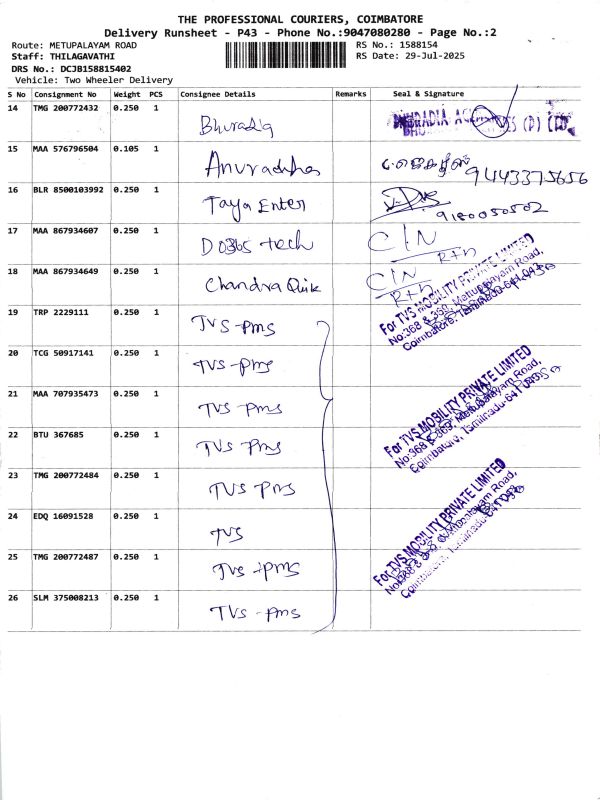 THE PROFESSIONAL COURIERS, COIMBATORE
Delivery Runsheet - P43 - Phone No.:9047080280 - Page No.:2
Route: METUPALAYAM ROAD
RS No.: 1588154
Staff: THILAGAVATHI
RS Date: 29-Jul-2025
DRS No.: DCJB158815402
Vehicle: Two Wheeler Delivery
S No Consignment No Weight PCS Consignee Details Remarks Seal & Signature
14 TMG 200772432 0.250 1 Bhuradia
15 MAA 576796504 0.105 1 Anuradha 9443375656
16 BLR 8500103992 0.250 1 Taya Enter 9180050502
17 MAA 867934607 0.250 1 D0365 tech C/N Rtn
18 MAA 867934649 0.250 1 Chandra Quik C/N Rtn
For TVS MOBILITY PRIVATE LIMITED
No:368 & 369, Mettupalayam Road,
Coimbatore, Tamilnadu-641 043
19 TRP 2229111 0.250 1 TVS-pms
20 TCG 50917141 0.250 1 TVS-pms
21 MAA 707935473 0.250 1 TVS-pms
For TVS MOBILITY PRIVATE LIMITED
No:368 & 369, Mettupalayam Road,
Coimbatore, Tamilnadu-641 043
22 BTU 367685 0.250 1 TVS-pms
23 TMG 200772484 0.250 1 TVS-pms
24 EDQ 16091528 0.250 1 TVS
For TVS MOBILITY PRIVATE LIMITED
No:368 & 369, Mettupalayam Road,
Coimbatore, Tamilnadu-641 043
25 TMG 200772487 0.250 1 TVS-pms
26 SLM 375008213 0.250 1 TVS-pms